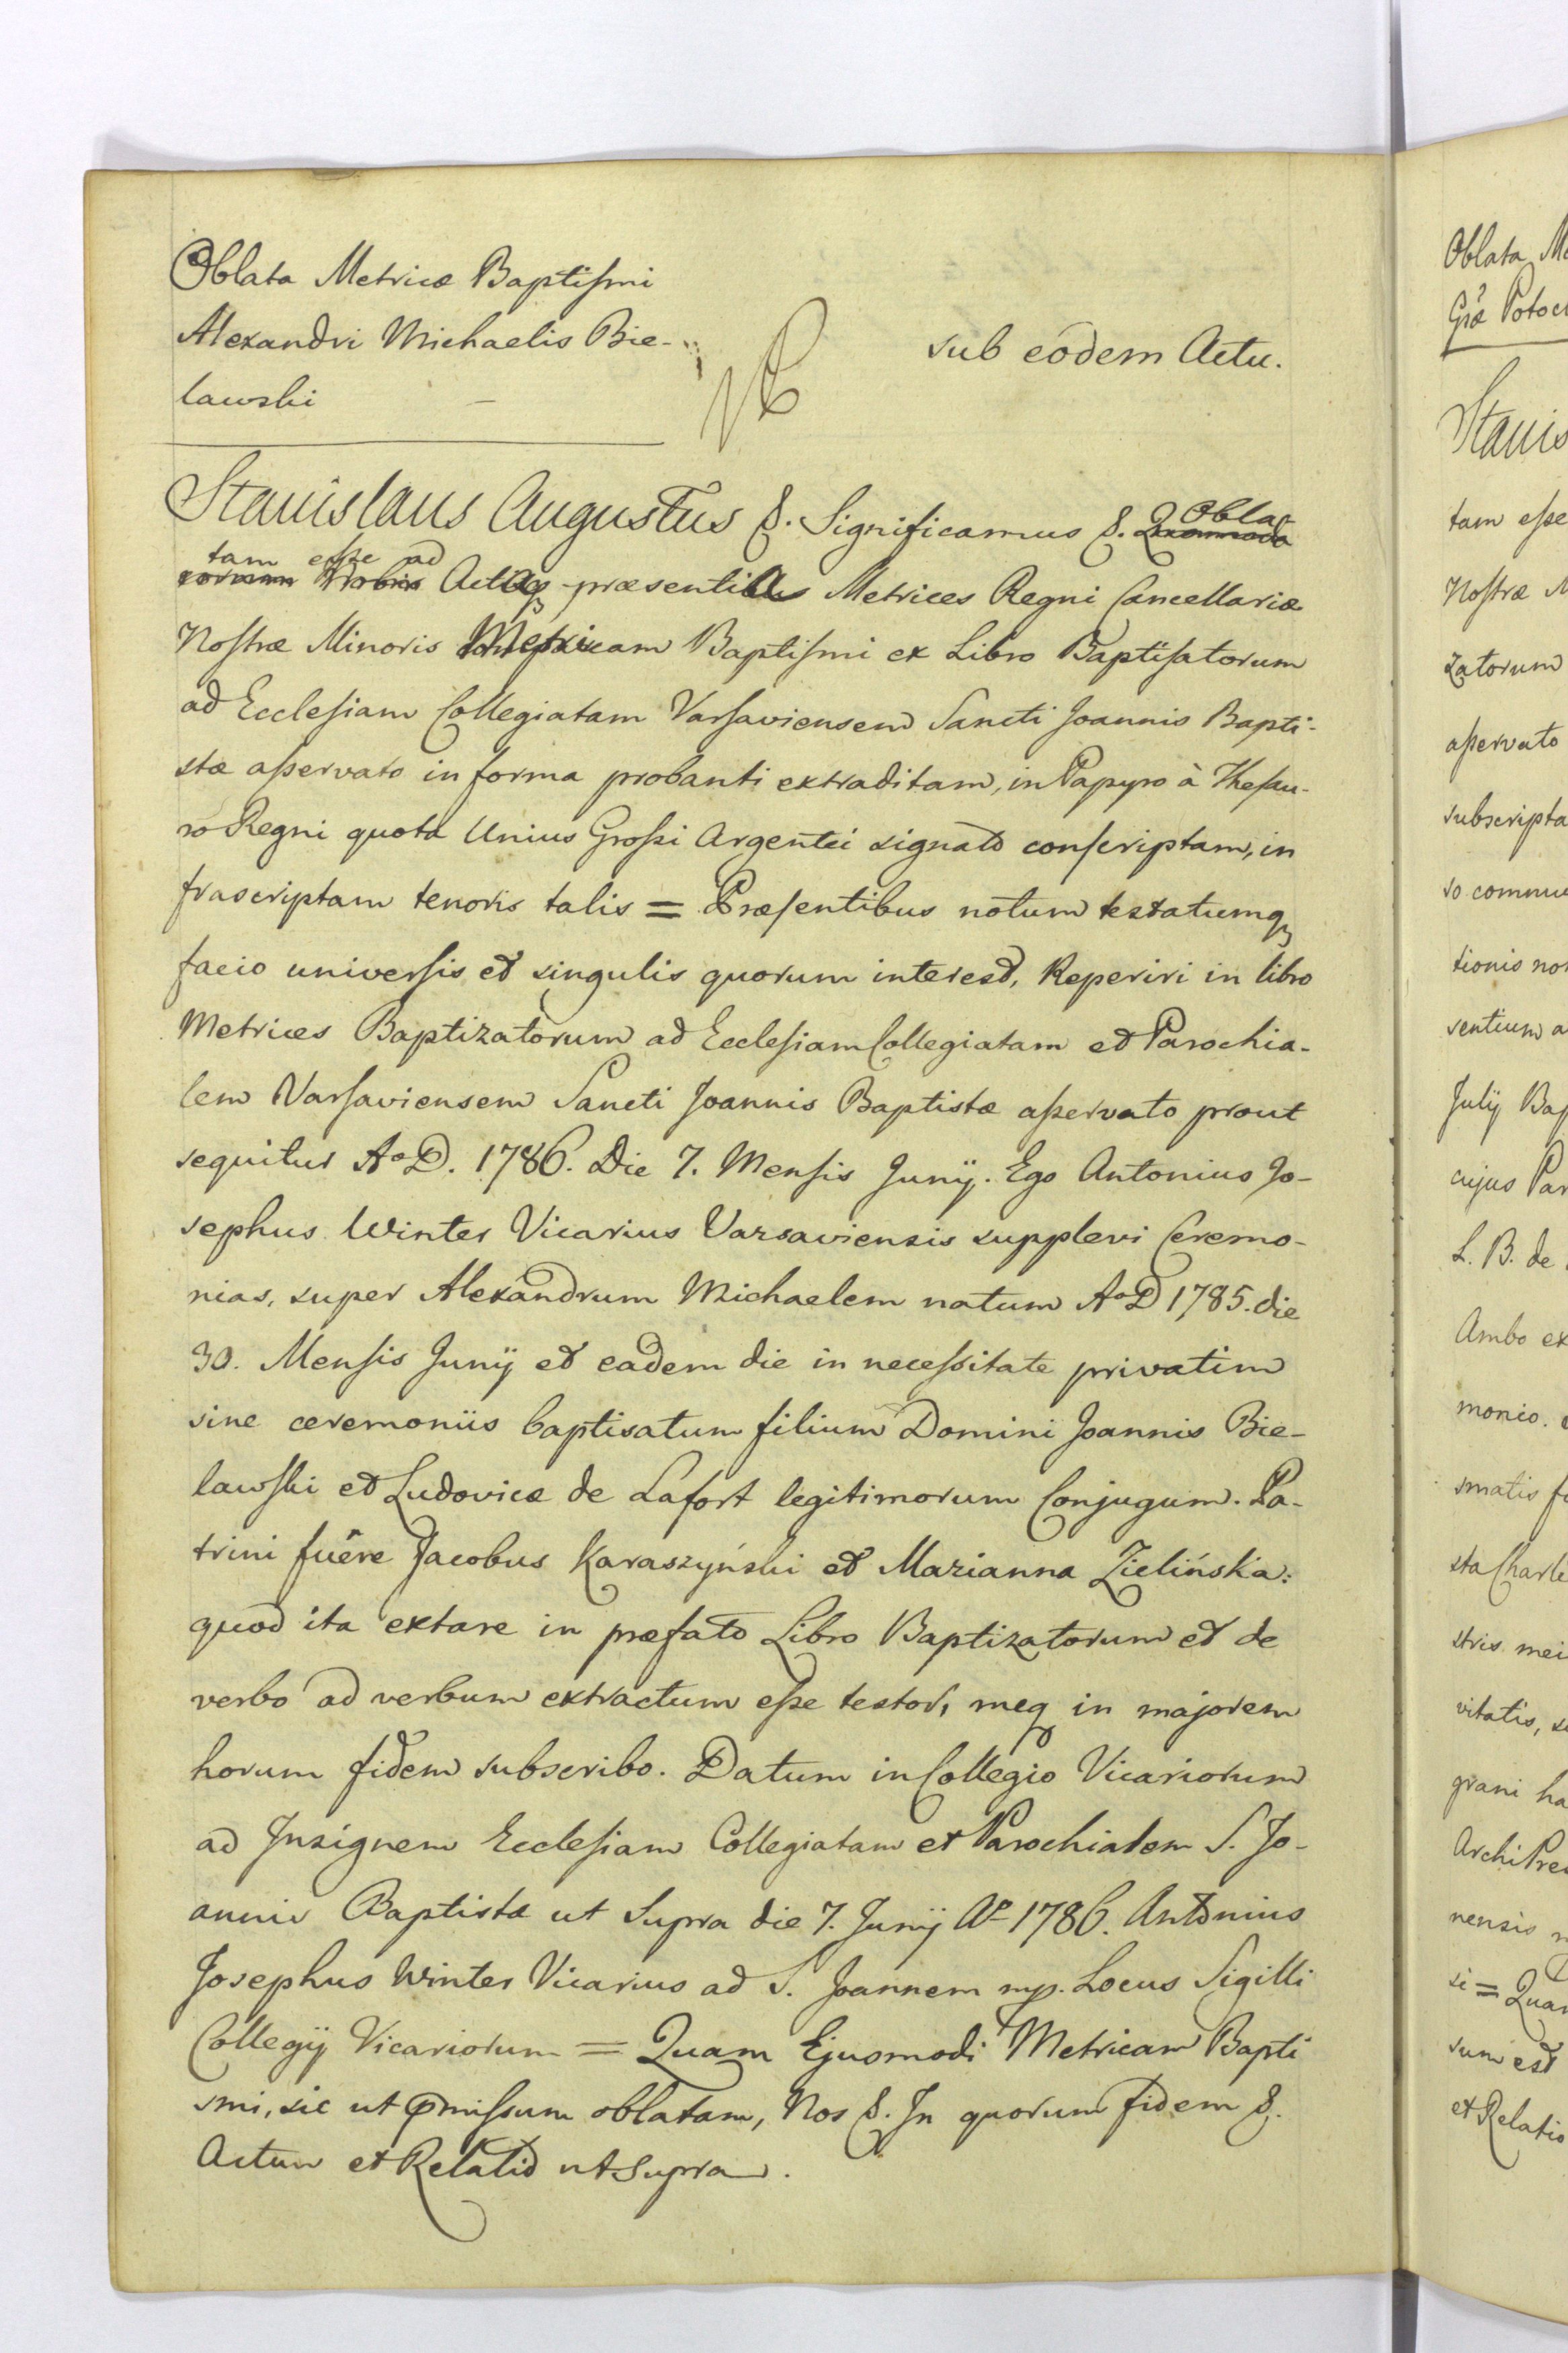 Oblata Metricæ Baptiſmi
Alexandri Michaelis Bie-
lawski
sub eodem Actu.
Stanislaus Augustus &. Significamus &. Obla-
tam eſse ad Acta præsentia Metrices Regni Cancellariæ
Noſtræ Minoris Metricam Baptiſmi ex Libro Baptiſatorum
ad Eccleſiam Collegiatam Varſaviensem Sancti Joannis Bapti-
stæ aſservato in forma probanti extraditam, in Papyro à Theſau-
ro Regni quota Unius Groſsi Argentei signato conſcriptam, in
frascriptam tenoris talis = Præſentibus notum testatumq
facio univerſis et singulis quorum interest, Reperiri in libro
Metrices Baptizatorum ad Eccleſiam Collegiatam et Parochia-
lem Varſaviensem Sancti Joannis Baptistæ aſservato prout
sequitur Ao D. 1786. Die 7. Menſis Junij. Ego Antonius Jo-
sephus Winter Vicarius Varsaviensis supplevi Ceremo-
nias, super Alexandrum Michaelem natum Ao D 1785. die
30. Menſis Junij et eadem die in neceſsitate privatim
sine ceremoniis baptisatum filium Domini Joannis Bie-
lawſki et Ludovicæ de Lafort legitimorum Conjugum. Pa-
trini fuêre Jacobus Karaszyński et Marianna Zielińska:
quod ita extare in præfato Libro Baptizatorum et de
verbo ad verbum extractum eſse testor, meq in majorem
horum fidem subscribo. Datum in Collegio Vicariorum
ad Insignem Eccleſiam Collegiatam et Parochialem S. Jo-
annis Baptistæ ut Supra die 7. Junij Ao 1786. Antonius
Josephus Winter Vicarius ad S. Joannem mp. Locus Sigilli
Collegij Vicariorum = Quam Ejusmodi Metricam Bapti
smi, sic ut pmiſsum oblatam, Nos &. In quorum fidem &.
Actum et Relatio ut Supra.
Oblata Me
Græ Potoc
Stanis
tam eſse
Noſtræ M
zatorum
aſservato
subscripta
so commu
tionis no
sentium a
Julij Bap
cujus Par
L. B. de
Ambo ex
monio.
smatis fu
sta Charle
stris mei
vitatis, s
grani ha
Archi Pre
nensis n
si = Quam
sum est
et Relatio